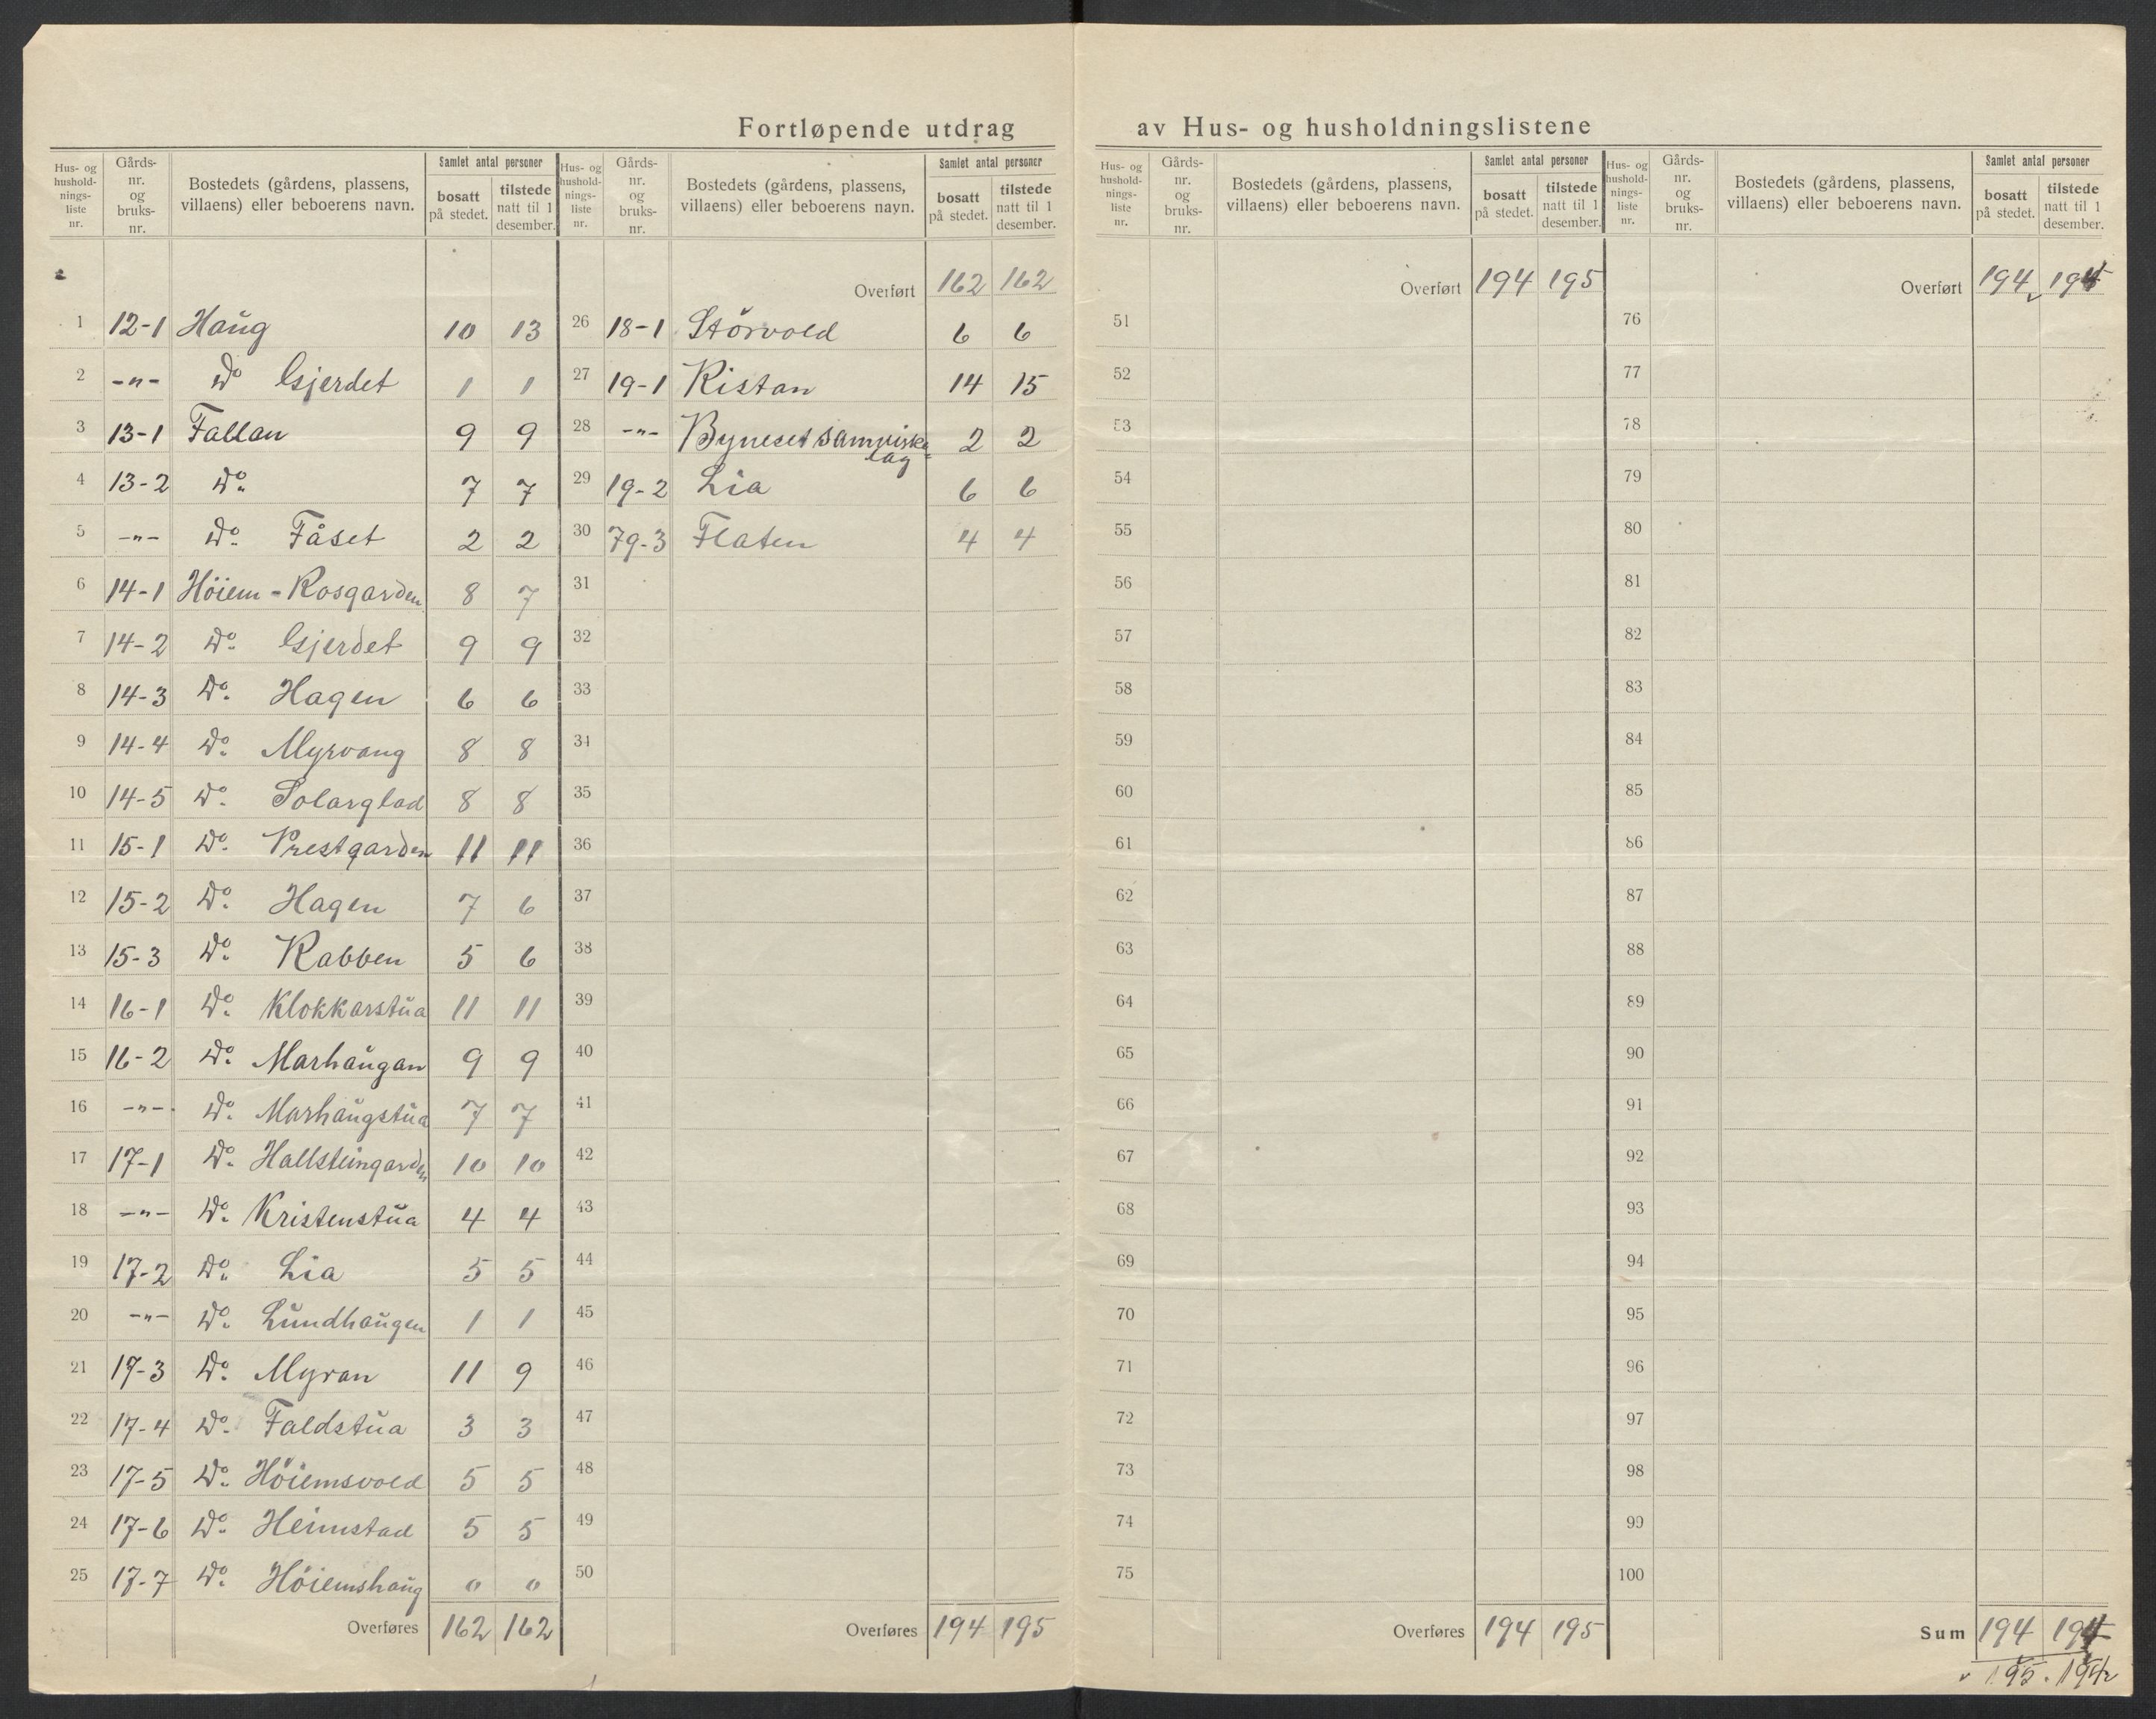 Fortløpende utdrag av Hus- og husholdningslistene
Hus- og hushold-nings-liste nr. | Gårds-nr. og bruks-nr. | Bostedets (gårdens, plassens, villaens) eller beboerens navn. | Samlet antal personer | bosatt på stedet. | tilstede natt til 1 desember.
1 12-1 Haŭg 10 13
2 -"- Do Gjerdet 1 1
3 13-1 Fallan 9 9
4 13-2 Do 7 7
5 -"- Do Fåset 2 2
6 14-1 Höiem - Rosgarden 8 7
7 14-2 Do Gjerdet 9 9
8 14-3 Do Hagen 6 6
9 14-4 Do Myrvang 8 8
10 14-5 Do Solarglad 8 8
11 15-1 Do Prestgarden 11 11
12 15-2 Do Hagen 7 6
13 15-3 Do Rabben 5 6
14 16-1 Do Klokkarstŭa 11 11
15 16-2 Do Marhaŭgan 9 9
16 -"- Do Marhaŭgstŭa 7 7
17 17-1 Do Hallsteingarden 10 10
18 -"- Do Kristenstŭa 4 4
19 17-2 Do Lia 5 5
20 -"- Do Lŭndhaŭgen 1 1
21 17-3 Do Myran 11 9
22 17-4 Do Faldstŭa 3 3
23 17-5 Do Höiemsvold 5 5
24 17-6 Do Heimstad 5 5
25 17-7 Do Höiemshaŭg 0 0
Overføres 162 162
Hus- og hushold-nings-liste nr. | Gårds-nr. og bruks-nr. | Bostedets (gårdens, plassens, villaens) eller beboerens navn. | Samlet antal personer | bosatt på stedet. | tilstede natt til 1 desember.
Overført 162 162
26 18-1 Störvold 6 6
27 19-1 Ristan 14 15
28 -"- Byneset samvirke-lag 2 2
29 19-2 Lia 6 6
30 79-3 Flaten 4 4
31
32
33
34
35
36
37
38
39
40
41
42
43
44
45
46
47
48
49
50
Overføres 194 195
Hus- og hushold-nings-liste nr. | Gårds-nr. og bruks-nr. | Bostedets (gårdens, plassens, villaens) eller beboerens navn. | Samlet antal personer | bosatt på stedet. | tilstede natt til 1 desember.
Overført 194 195
51
52
53
54
55
56
57
58
59
60
61
62
63
64
65
66
67
68
69
70
71
72
73
74
75
Overføres 194 195
Hus- og hushold-nings-liste nr. | Gårds-nr. og bruks-nr. | Bostedets (gårdens, plassens, villaens) eller beboerens navn. | Samlet antal personer | bosatt på stedet. | tilstede natt til 1 desember.
Overført 194
76
77
78
79
80
81
82
83
84
85
86
87
88
89
90
91
92
93
94
95
96
97
98
99
100
Sum 194 194
195